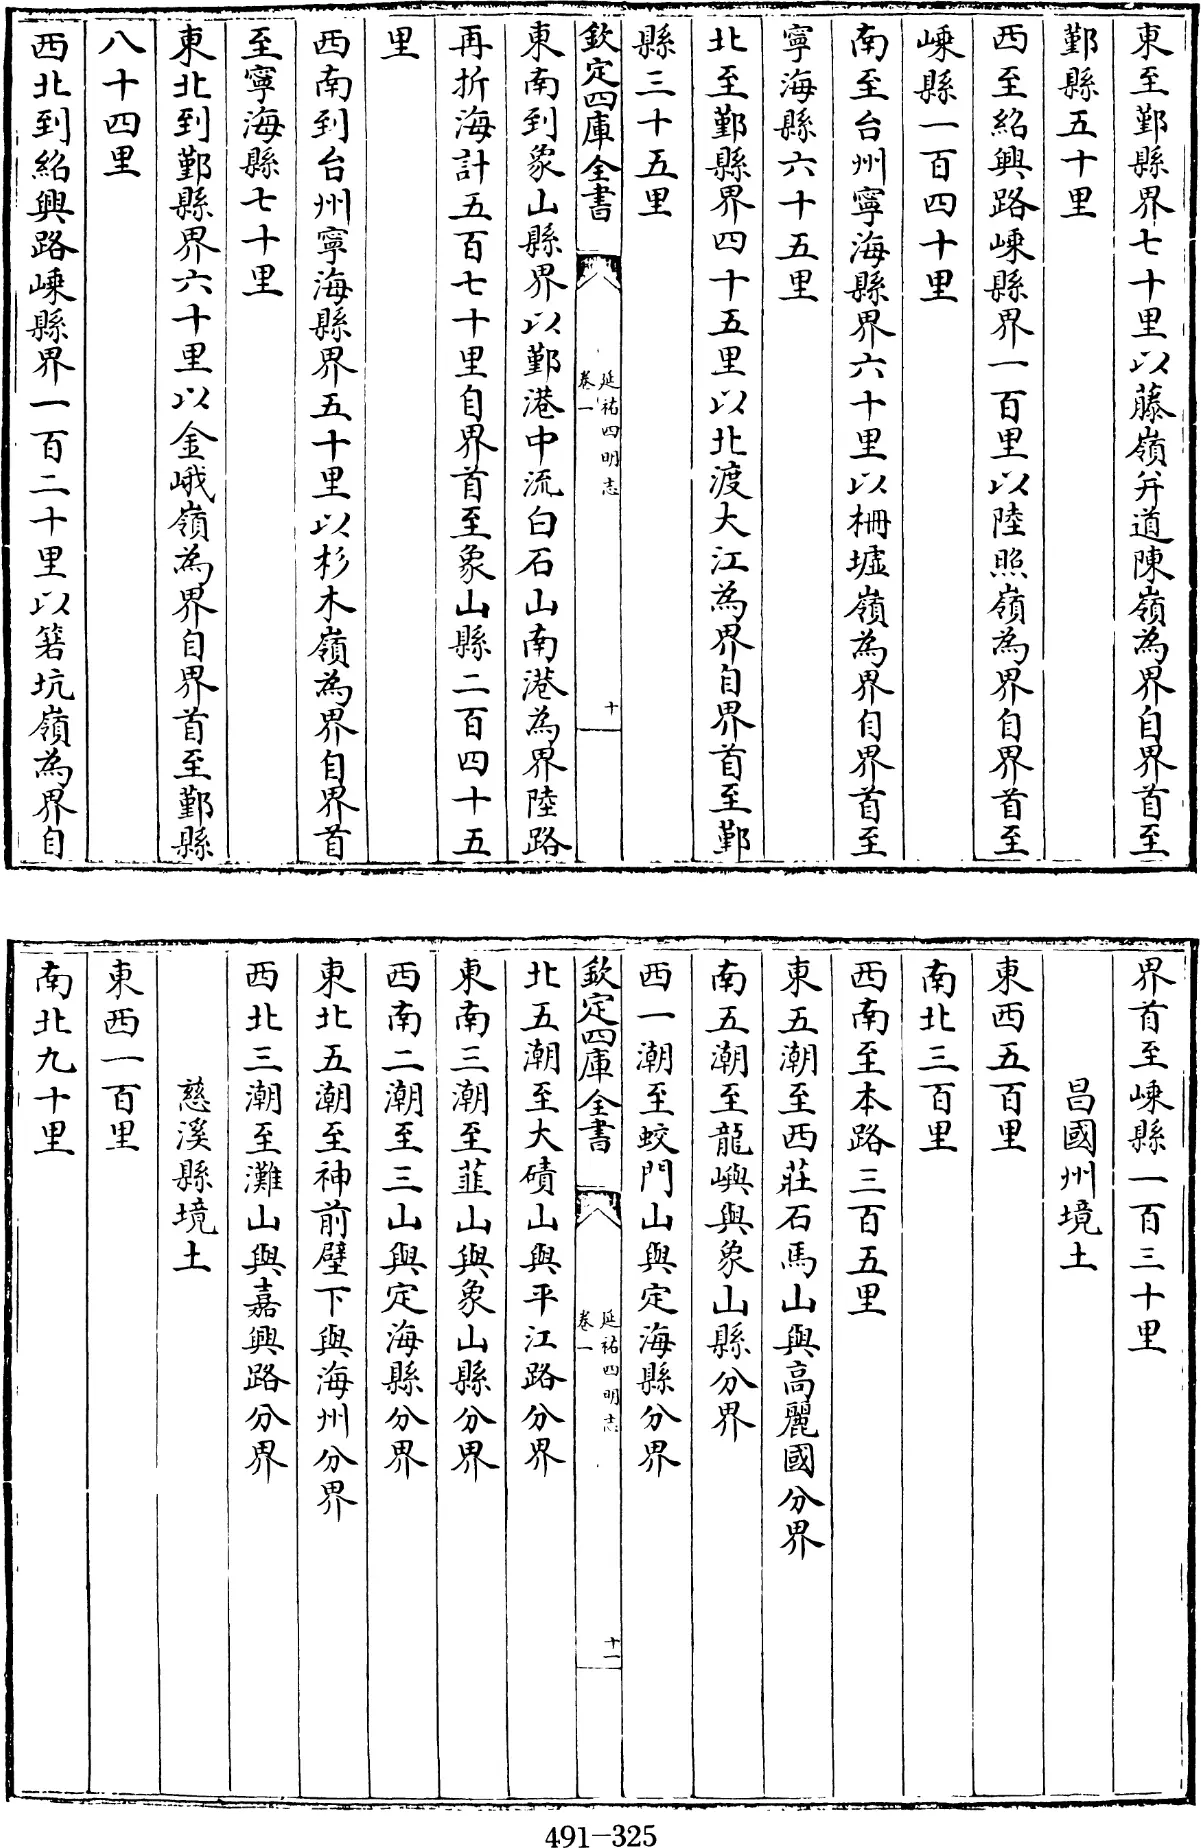 東至鄞縣界七十里以藤嶺并道陳嶺為界自界首至
鄞縣五十里
西至紹興路嵊縣界一百里以陸照嶺為界自界首至
嵊縣一百四十里
南至台州寧海縣界六十里以柵墟嶺為界自界首至
寧海縣六十五里
北至鄞縣界四十五里以北渡大江為界自界首至鄞
縣三十五里
欽定四庫全書
延祐四明志
卷一
十
東南到象山縣界以鄞港中流白石山南港為界陸路
再折海計五百七十里自界首至象山縣二百四十五
里
西南到台州寧海縣界五十里以杉木嶺為界自界首
至寧海縣七十里
東北到鄞縣界六十里以金峨嶺為界自界首至鄞縣
八十四里
西北到紹興路嵊縣界一百二十里以箬坑嶺為界自
界首至嵊縣一百三十里
昌國州境土
東西五百里
南北三百里
西南至本路三百五里
東五潮至西莊石馬山與高麗國分界
南五潮至龍嶼與象山縣分界
西一潮至蛟門山與定海縣分界
欽定四庫全書
延祐四明志
卷一
十一
北五潮至大磧山與平江路分界
東南三潮至韮山與象山縣分界
西南二潮至三山與定海縣分界
東北五潮至神前壁下與海州分界
西北三潮至灘山與嘉興路分界
慈溪縣境土
東西一百里
南北九十里
491-325